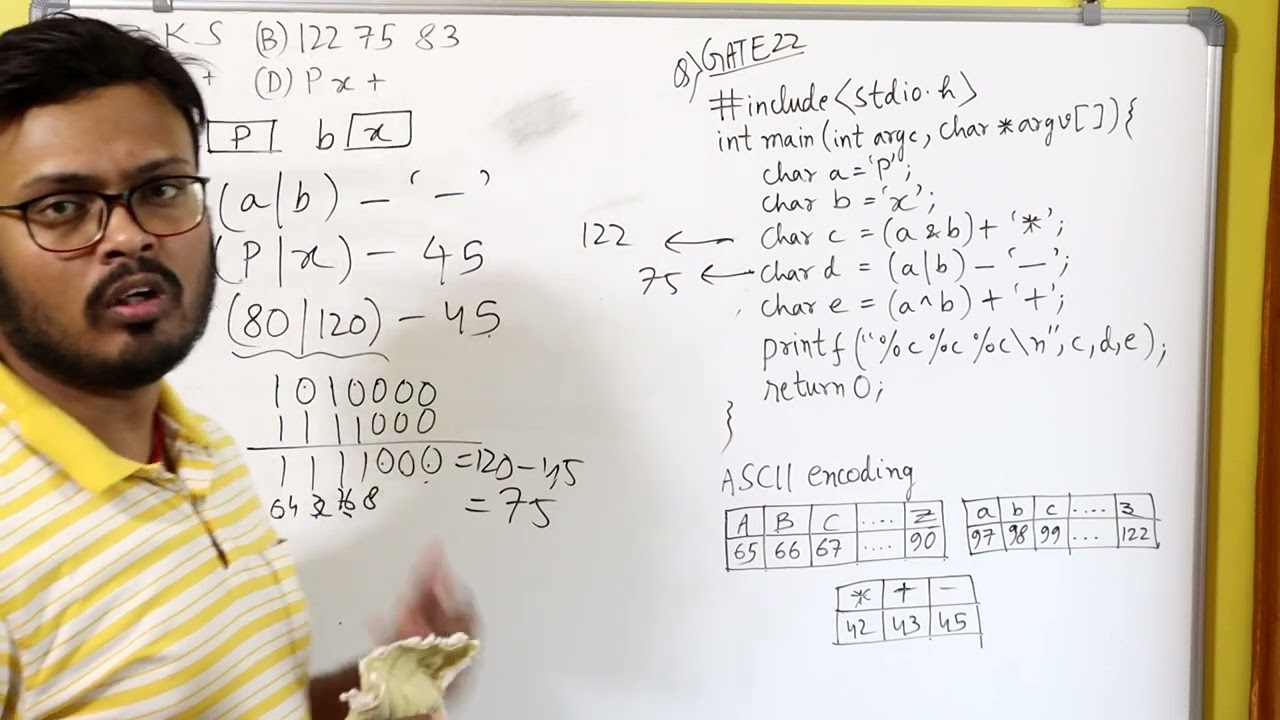 K S (B) 122 75 83
+ (D) P x +
P b x
(a|b) - '-'
(P|x) - 45
(80|120) - 45
1010000
1111000
1111000 = 120 - 45
64 32 16 8
= 75
Q) GATE22
#include<stdio.h>
int main(int argc, char *argv[]){
char a='P';
char b='x';
122 ← char c = (a & b) + '*';
75 ← char d = (a|b) - '-';
char e = (a^b) + '+';
printf("%c %c %c\n", c, d, e);
return 0;
}
ASCII encoding
A B C .... Z
65 66 67 .... 90
a b c .... z
97 98 99 ... 122
* + -
42 43 45